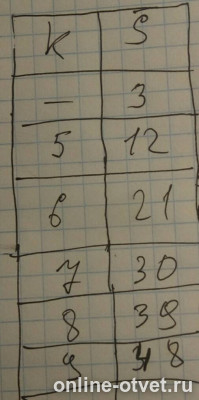 K S
— 3
5 12
6 21
7 30
8 39
9 48
online-otvet.ru